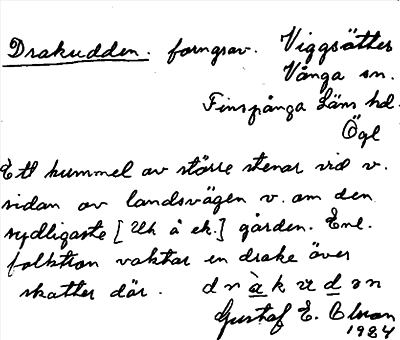 Drakudden. forngrav. Viggsätter
Vånga sn.
Finspånga läns hd.
Ögl
Ett kummel av större stenar vid v.
sidan av landsvägen v. om den
sydligaste [Uh å ek.] gården. Enl.
folktron vaktar en drake över
skatter där.
Gustaf E. Olsson
1924